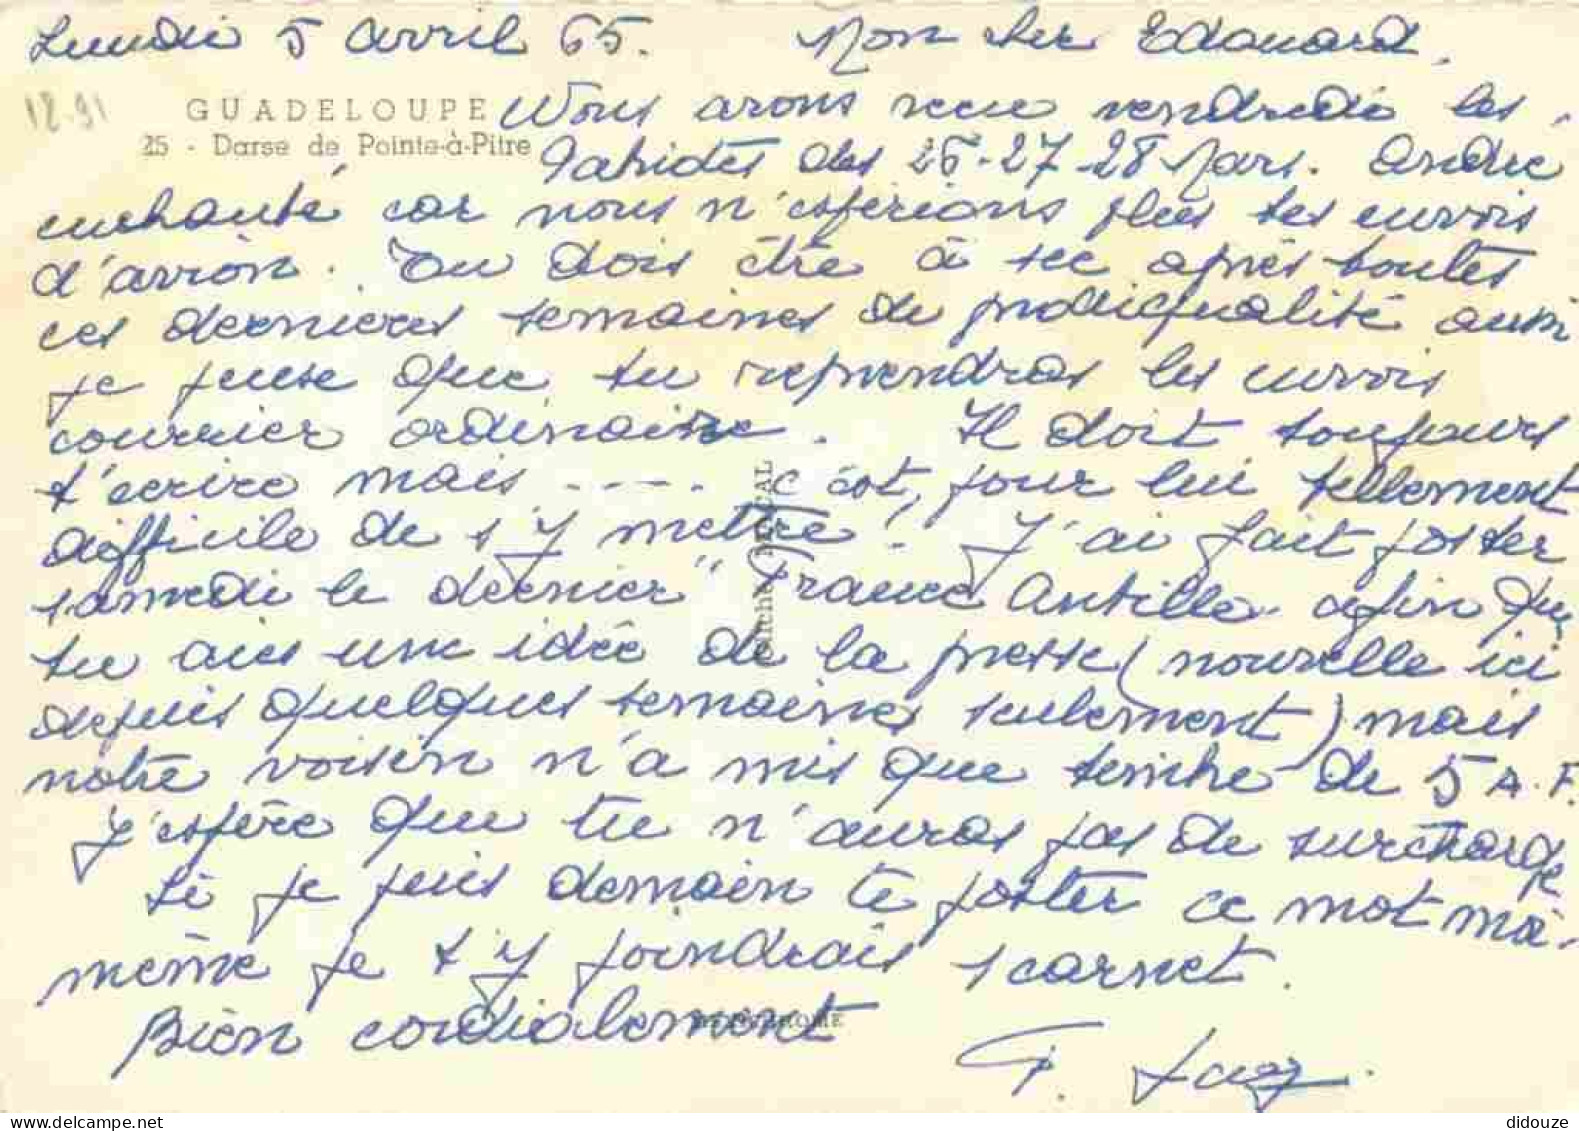 Lundi 5 avril 65. Mon cher Edouard,
12-91
GUADELOUPE
25 - Darse de Pointe-à-Pitre
Nous avons reçu vendredi les
des 26-27-28 Mars. André
enchanté car nous n'espérions plus tes envois
d'avion. Tu dois être à sec après toutes
ces dernières semaines de prodigalité aussi
je pense que tu reprendras les envois
courrier ordinaire. Il doit toujours
t'écrire mais ---- c'est, pour lui tellement
difficile de s'y mettre! J'ai fait poster
samedi le dernier "France Antille" afin que
tu aies une idée de la presse (nouvelle ici
depuis quelques semaines seulement) mais
notre voisin n'a mis que timbre de 5 A.F.
J'espère que tu n'auras pas de surcharge
Si je puis demain te poster ce mot moi-
même je t'y joindrais 1 carnet.
Bien cordialement
Cliché